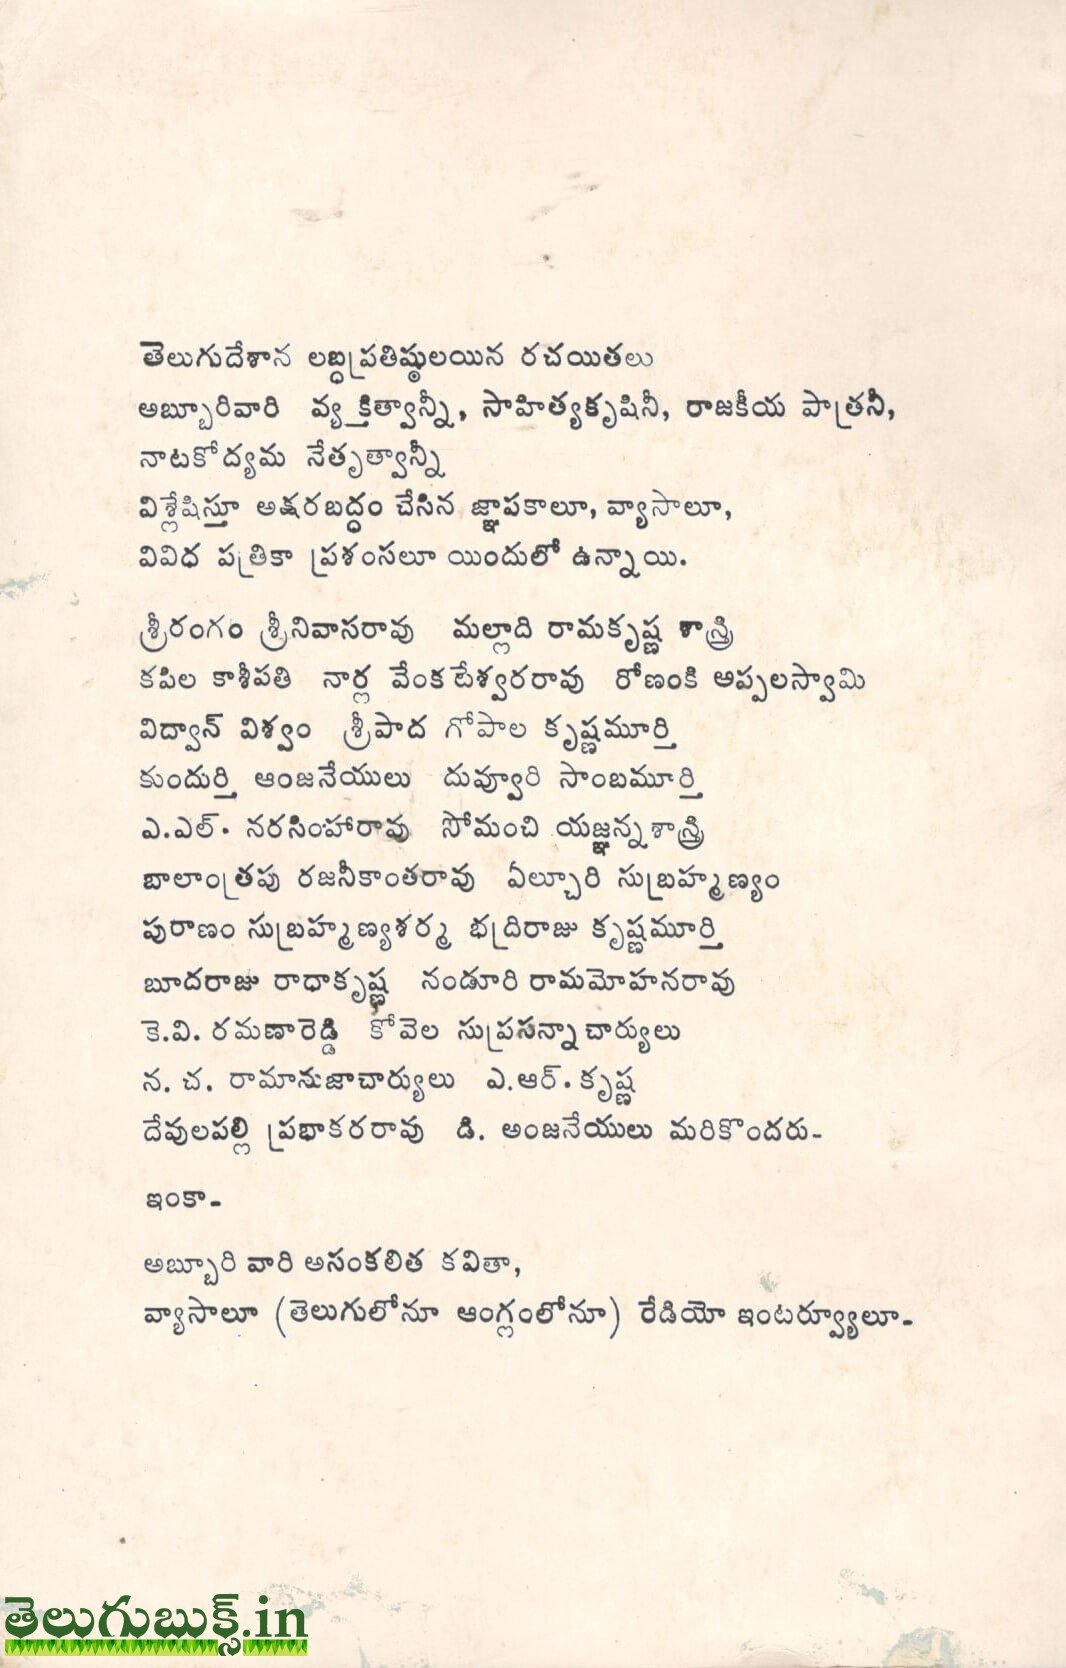 తెలుగుదేశాన లబ్ధప్రతిష్ఠులయిన రచయితలు
అబ్బూరివారి వ్యక్తిత్వాన్నీ, సాహిత్యకృషినీ, రాజకీయ పాత్రనీ,
నాటకోద్యమ నేతృత్వాన్నీ
విశ్లేషిస్తూ అక్షరబద్ధం చేసిన జ్ఞాపకాలూ, వ్యాసాలూ,
వివిధ పత్రికా ప్రశంసలూ యిందులో ఉన్నాయి.
శ్రీరంగం శ్రీనివాసరావు మల్లాది రామకృష్ణ శాస్త్రి
కపిల కాశీపతి నార్ల వేంకటేశ్వరరావు రోణంకి అప్పలస్వామి
విద్వాన్ విశ్వం శ్రీపాద గోపాల కృష్ణమూర్తి
కుందుర్తి ఆంజనేయులు దువ్వూరి సాంబమూర్తి
ఎ.ఎల్. నరసింహారావు సోమంచి యజ్ఞన్నశాస్త్రి
బాలాంత్రపు రజనీకాంతరావు ఏల్చూరి సుబ్రహ్మణ్యం
పురాణం సుబ్రహ్మణ్యశర్మ భద్రిరాజు కృష్ణమూర్తి
బూదరాజు రాధాకృష్ణ నండూరి రామమోహనరావు
కె.వి. రమణారెడ్డి కోవెల సుప్రసన్నాచార్యులు
న. చ. రామానుజాచార్యులు ఎ.ఆర్. కృష్ణ
దేవులపల్లి ప్రభాకరరావు డి. అంజనేయులు మరికొందరు-
ఇంకా-
అబ్బూరి వారి అసంకలిత కవితా,
వ్యాసాలూ (తెలుగులోనూ ఆంగ్లంలోనూ) రేడియో ఇంటర్వ్యూలూ-
తెలుగుబుక్స్.in